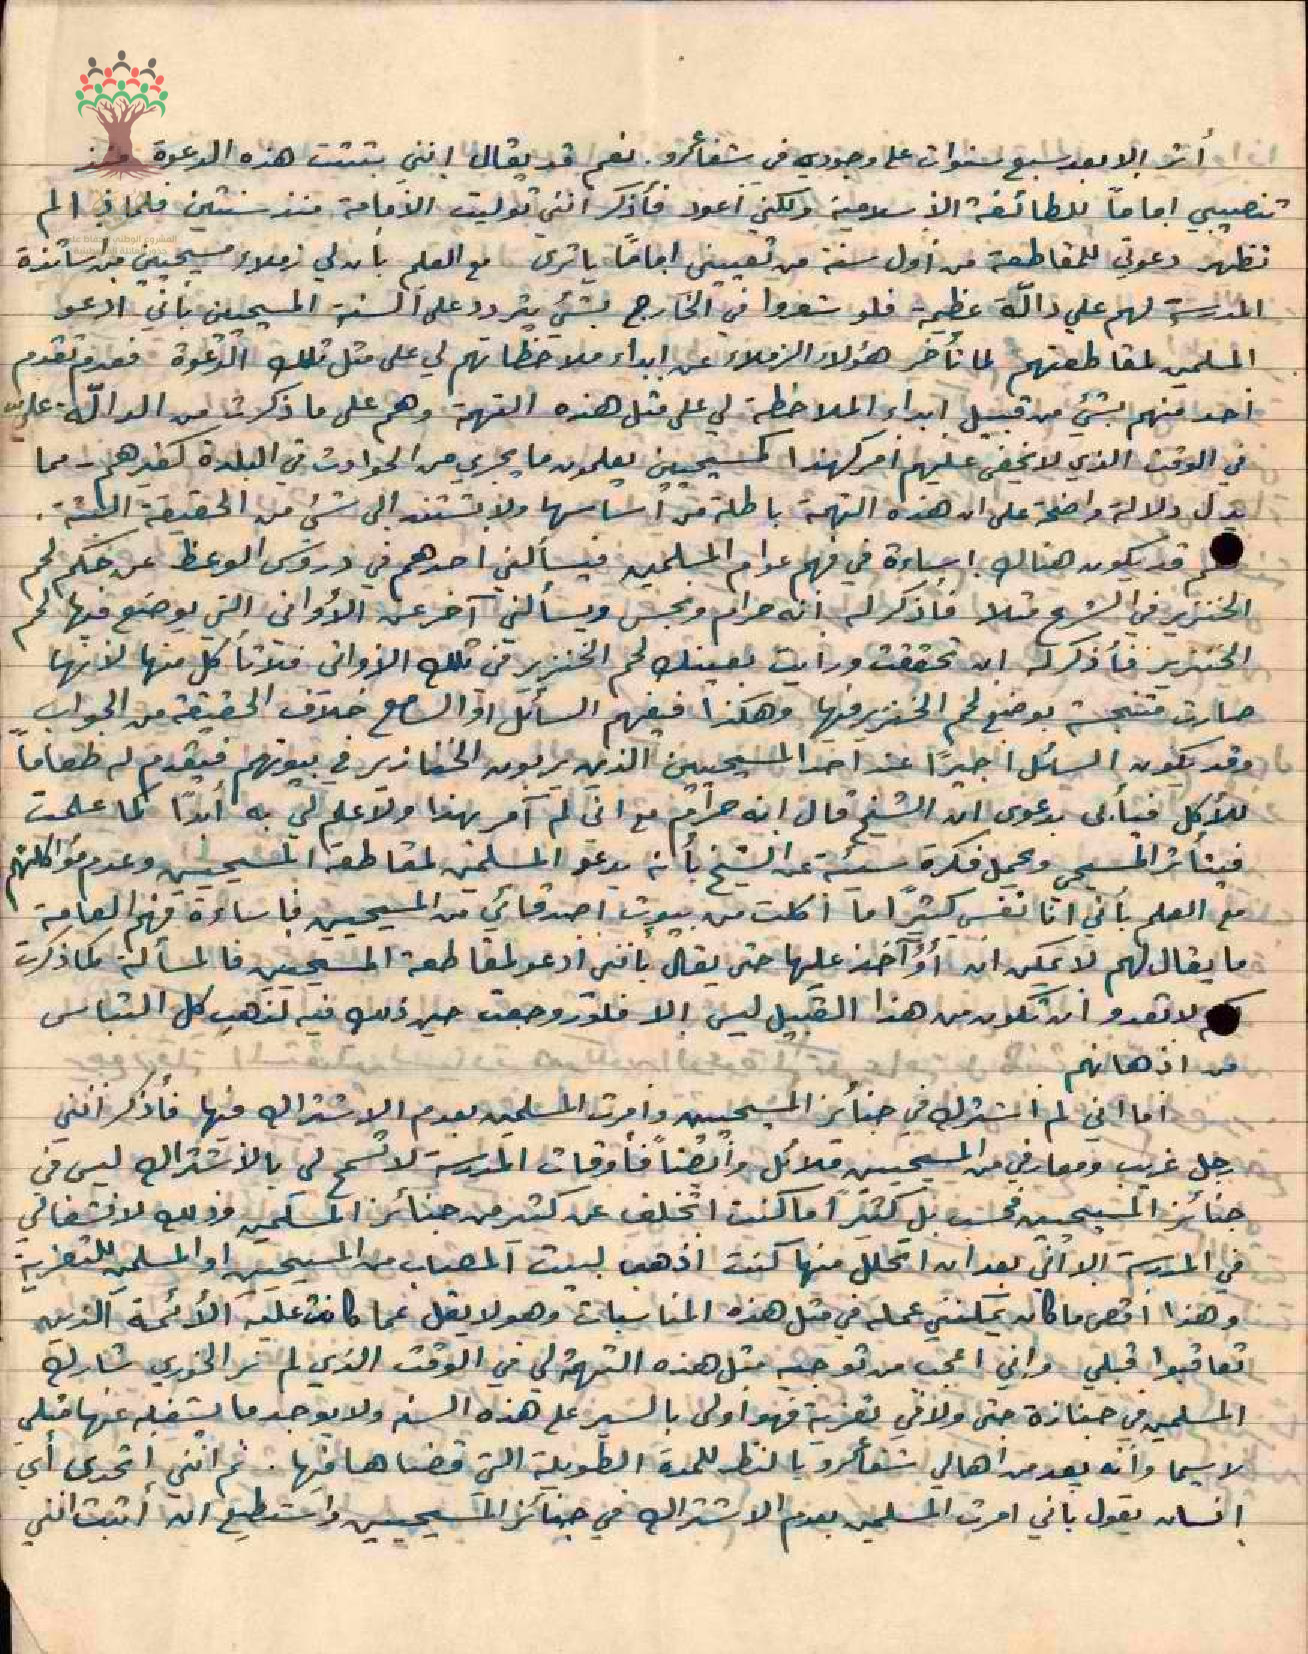 أثر إلا بعد سبع سنوات على وجودي في شفاعمرو. نعم قد يقال انني بثثت هذه الدعوة منذ
تنصيبي اماماً للطائفة الاسلامية ولكني أعود فأذكر انني توليت الامامة منذ سنتين فلماذا لم
تظهر دعوتي للمقاطعة من أول سنة من تعييني اماماً يا ترى مع العلم بأن لي زملاء مسيحيين من أساتذة
المدرسة لهم علي دالّة عظيمة فلو شعروا في الخارج بشئ يتردد على ألسنة المسيحيين بأني ادعو
المسلمين لمقاطعتهم لما تأخر هؤلاء الزملاء عن ابداء ملاحظاتهم لي على مثل تلك الدعوة فعدم تقدم
احد منهم بشئ من قبيل ابداء الملاحظة لي على مثل هذه التهمة وهم على ما ذكرت من الدالّة علي
في الوقت الذي لا يخفى عليهم أمر كهذا كمسيحيين يعلمون ما يجري من الحوادث في البلدة كغيرهم - مما
يدل دلالة واضحة على ان هذه التهمة باطلة من أساسها ولا تستند الى شئ من الحقيقة البتة.
قد يكون هناك اساءة في فهم عوام المسلمين فيسألني احدهم في دروس الوعظ عن حكم لحم
الخنزير في الشرع مثلا فأذكر له أنه حرام ونجس ويسألني آخر عن الأواني التي يوضع فيها لحم
الخنزير فأذكر له ان تحققت ورأيت بعينك لحم الخنزير في تلك الاواني فلا تأكل منها لأنها
صارت متنجسة بوضع لحم الخنزير فيها وهكذا فيفهم السائل او السامع خلاف الحقيقة من الجواب
وقد يكون السائل اجيراً عند احد المسيحيين الذين يربون الخنازير في بيوتهم فيقدم له طعاماً
للأكل فيأبى بدعوى ان الشيخ قال انه حرام مع اني لم آمر بهذا ولا علم لي به أبداً كما علمت
فيتأثر المسيحي ويحمل فكرة سيئة عن الشيخ بأنه يدعو المسلمين لمقاطعة المسيحيين وعدم مؤاكلتهم
مع العلم بأني انا نفسي كثيراً ما أكلت من بيوت اصدقائي من المسيحيين فاساءة فهم العامة
ما يقال لهم لا يمكن ان أؤآخذ عليها حتى يقال بأنني ادعو لمقاطعة المسيحيين فالمسألة كما ذكرت
لا تعدو أن تكون من هذا القبيل ليس إلا فلو روجعت حين ذلك فيه لذهب كل التباس
من اذهانهم
أما اني لم اشترك في جنائز المسيحيين وأمرت المسلمين بعدم الاشتراك فيها فأذكر انني
رجل غريب ومعارفي من المسيحيين قلائل وأيضاً فأوقات المدرسة لا تسمح لي بالاشتراك ليس في
جنائز المسيحيين فحسب بل كثيراً ما كنت اتخلف عن كثير من جنائز المسلمين وذلك لانشغالي
في المدرسة الا اني بعد ان اتحلل منها كنت اذهب لبيت المصاب من المسيحيين او المسلمين للتعزية
وهذا أقصى ما كان يمكنني عمله في مثل هذه المناسبات وهو لا يقل عما كانت عليه الأئمة الذين
تعاقبوا قبلي واني اعجب من توجيه مثل هذه التهمة لي في الوقت الذي لم نر الخوري شارك
المسلمين في جنازة حتى ولا في تعزية فهو أولى بالسير على هذه السنة ولا يوجد ما يشغله عنها مثلي
لا سيما وأنه يعد من اهالي شفاعمرو بالنظر للمدة الطويلة التي قضاها فيها. ثم انني اتحدى أي
انسان يقول بأني امرت المسلمين بعدم الاشتراك في جنائز المسيحيين واستطيع ان أثبت انني